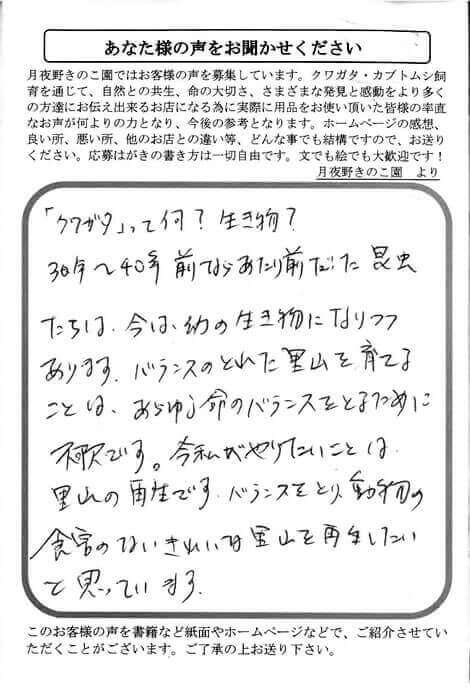 あなた様の声をお聞かせください
月夜野きのこ園ではお客様の声を募集しています。クワガタ・カブトムシ飼
育を通じて、自然との共生、命の大切さ、さまざまな発見と感動をより多く
の方達にお伝え出来るお店になる為に実際に用品をお使い頂いた皆様の率直
なお声が何よりの力となり、今後の参考となります。ホームページの感想、
良い所、悪い所、他のお店との違い等、どんな事でも結構ですので、お送り
ください。応募はがきの書き方は一切自由です。文でも絵でも大歓迎です！
月夜野きのこ園　より
「クワガタ」って何？生き物？
30年～40年前ならあたり前だった昆虫
たちは、今は、幻の生き物になりつつ
あります。バランスのとれた里山を育てる
ことは、あらゆる命のバランスをとるために
不可欠です。今私がやりたいことは、
里山の再生です。バランスをとり、動物の
食害のないきれいな里山を再生したい
と思っています。
このお客様の声を書籍など紙面やホームページなどで、ご紹介させてい
ただくことがございます。ご了承の上お送り下さい。